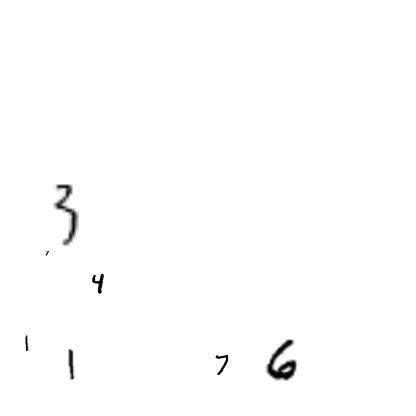 3
4
1
1 7 6